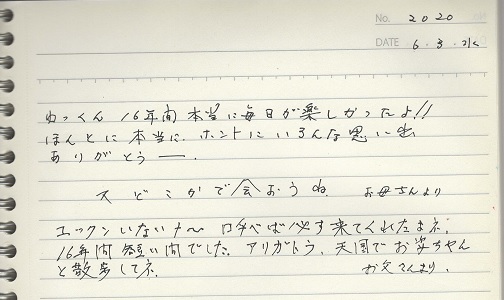 No. 2020
DATE 6・3・水
ゆっくん 16年間本当に毎日が楽しかったよ!!
ほんとに本当に、ホントにいろんな思い出
ありがとうー.
又どこかで会おうね. お母さんより
エックンいないナ〜 ロ乎べば必ず来てくれたネ.
16年間短い間でした. アリガトウ. 天国でお婆ちゃん
と散歩してネ. お父さんより.